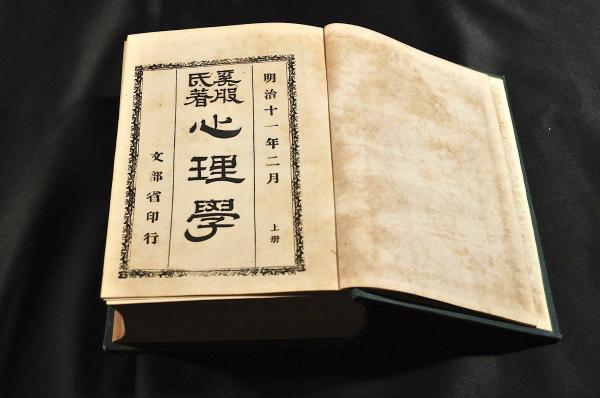 明治十一年二月 上册
奚般
氏著
心理學
文部省印行